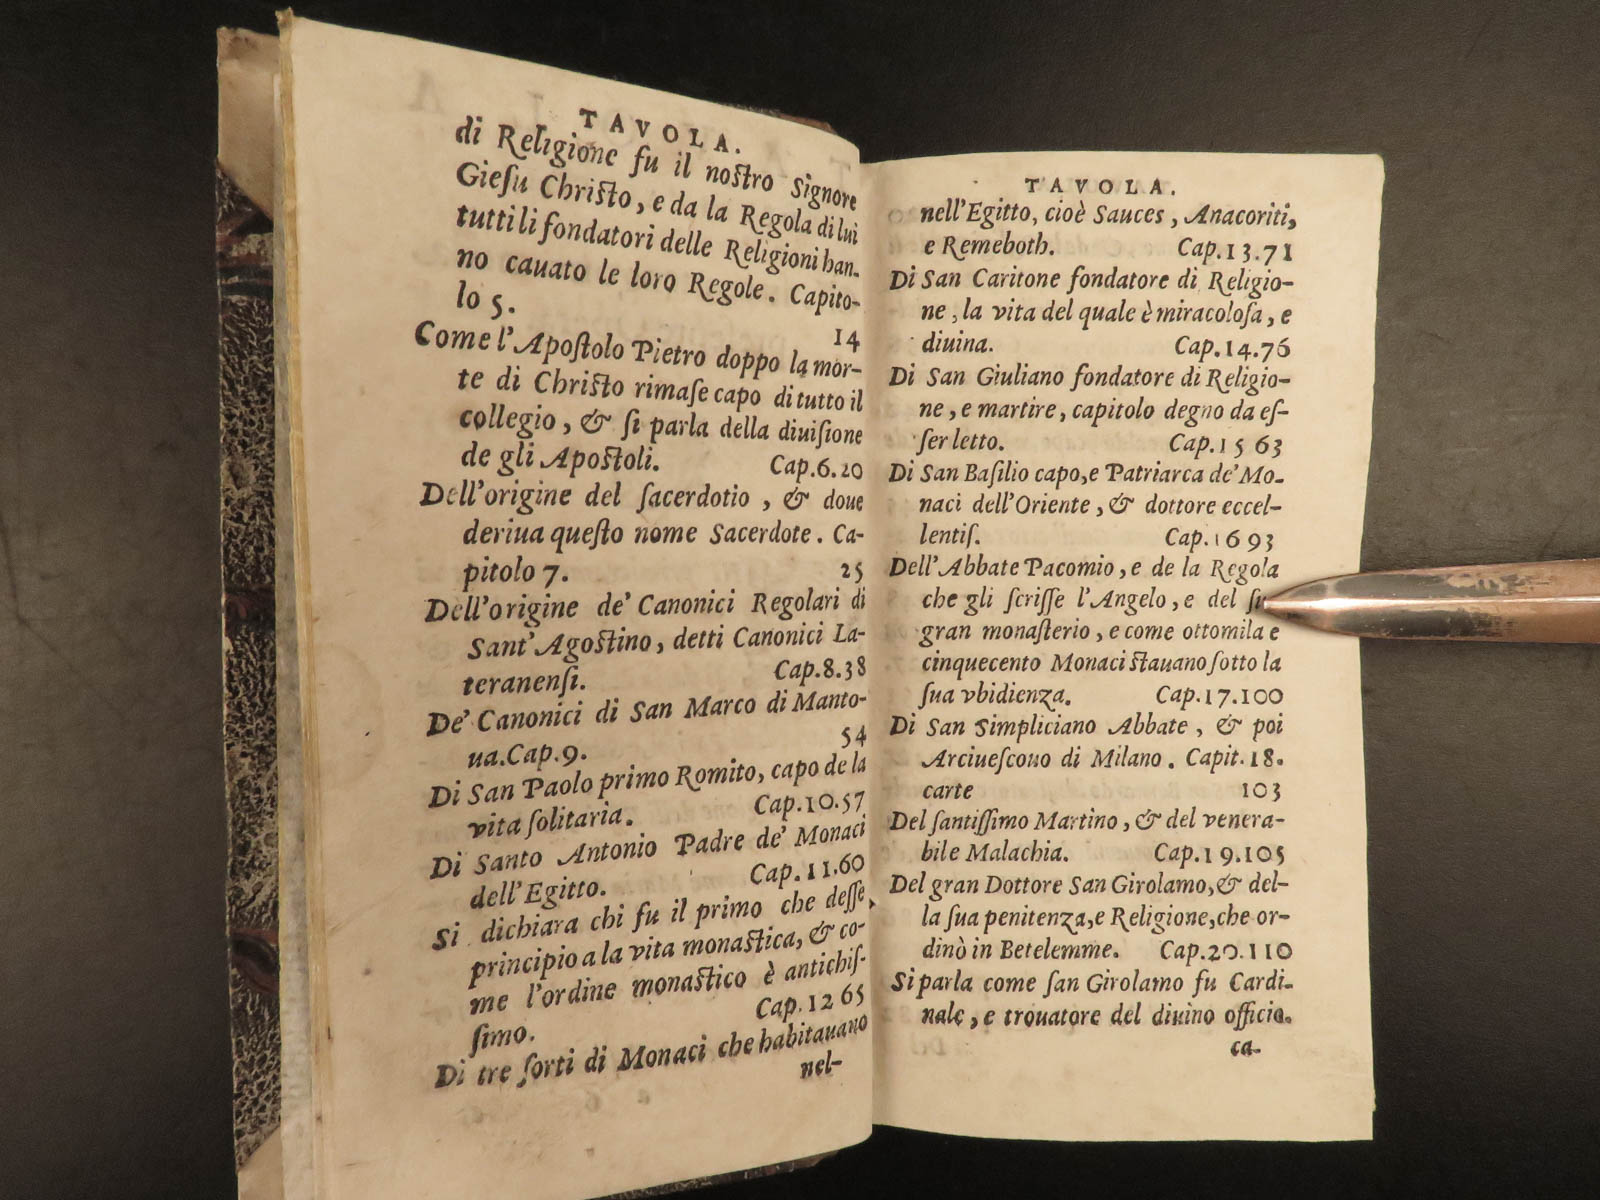 TAVOLA.
di Religione fu il nostro Signore
Gieſu Chriſto, e da la Regola di lui
tutti li fondatori delle Religioni han-
no cauato le loro Regole. Capito-
lo 5. 14
Come l'Apoſtolo Pietro doppo la mor-
te di Chriſto rimaſe capo di tutto il
collegio, & ſi parla della diuiſione
de gli Apoſtoli. Cap.6.20
Dell'origine del ſacerdotio, & doue
deriua queſto nome Sacerdote. Ca-
pitolo 7. 25
Dell'origine de' Canonici Regolari di
Sant' Agoſtino, detti Canonici La-
teranenſi. Cap.8.38
De' Canonici di San Marco di Manto-
ua.Cap.9. 54
Di San Paolo primo Romito, capo de la
vita ſolitaria. Cap.10.57
Di Santo Antonio Padre de' Monaci
dell'Egitto. Cap.11.60
Si dichiara chi fu il primo che deſſe
principio a la vita monaſtica, & co-
me l'ordine monaſtico è antichiſ-
ſimo. Cap.12 65
Di tre ſorti di Monaci che habitauano
nel-
TAVOLA.
nell'Egitto, cioè Sauces, Anacoriti,
e Remeboth. Cap.13.71
Di San Caritone fondatore di Religio-
ne, la vita del quale è miracoloſa, e
diuina. Cap.14.76
Di San Giuliano fondatore di Religio-
ne, e martire, capitolo degno da eſ-
ſer letto. Cap.15 63
Di San Baſilio capo, e Patriarca de' Mo-
naci dell'Oriente, & dottore eccel-
lentiſ. Cap.16 93
Dell'Abbate Pacomio, e de la Regola
che gli ſcriſſe l'Angelo, e del
gran monaſterio, e come ottomila e
cinquecento Monaci ſtauano ſotto la
ſua vbidienza. Cap.17.100
Di San Simpliciano Abbate, & poi
Arciueſcouo di Milano. Capit.18.
carte 103
Del ſantiſſimo Martino, & del venera-
bile Malachia. Cap.19.105
Del gran Dottore San Girolamo, & del-
la ſua penitenza, e Religione, che or-
dinò in Betelemme. Cap.20.110
Si parla come ſan Girolamo fu Cardi-
nale, e trouatore del diuino officio.
ca-